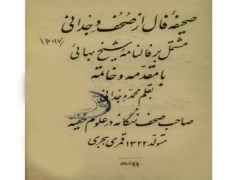 صحیفهٔ فال از صحف وجدانی
مشتمل بر فالنامهٔ شیخ بهائی
با مقدمه و خاتمه
بقلم محمد وجدانی
صاحب صحف ششگانه در علوم خفیه
متولد ۱۳۲۲ قمری هجری